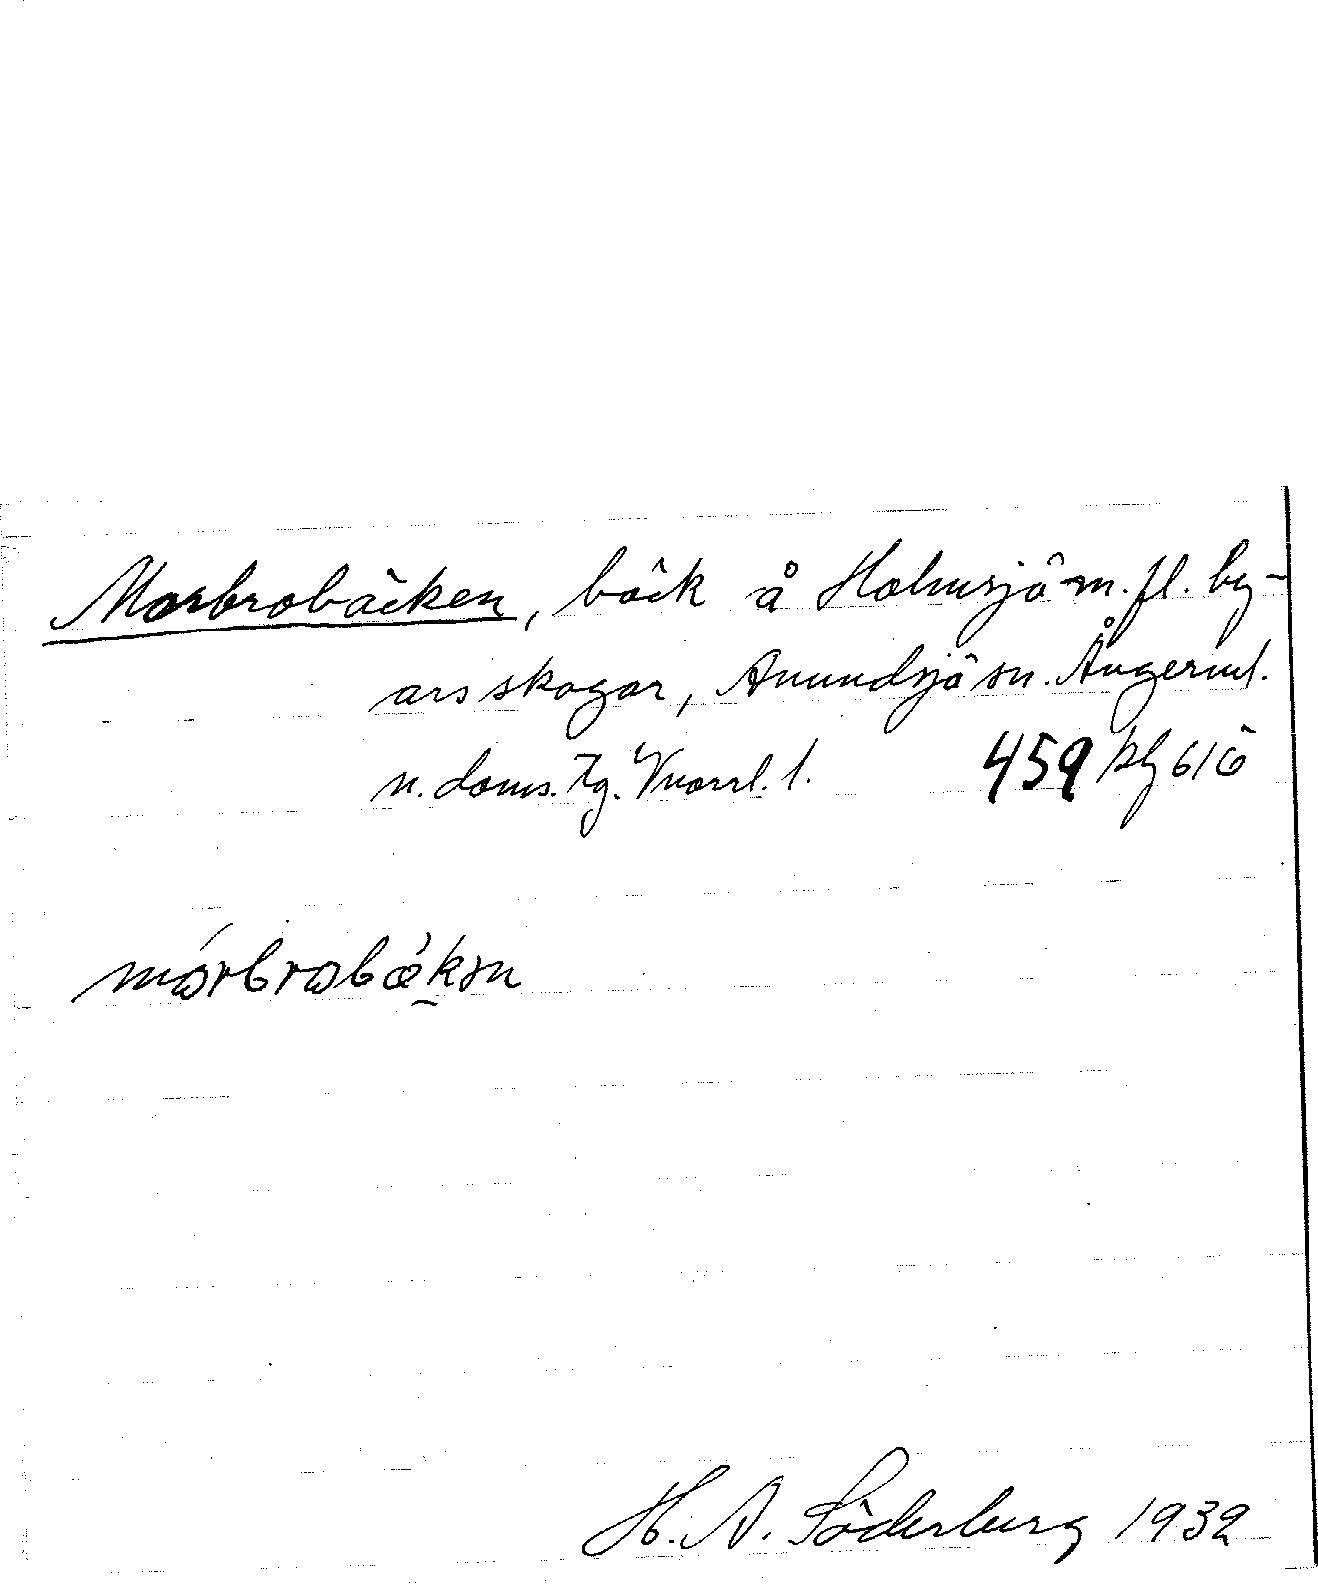 Morbrobäcken, bäck å Holmsjö m.fl. by-
ars skogar, Anundsjö sn. Ångerml.
n. doms. tg. Vnorrl. l. 459
mórbrobǽkən
H. A. Söderberg 1932